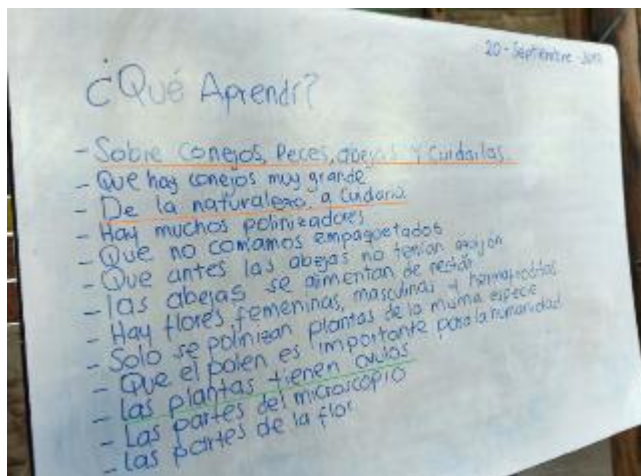 20-Septiembre-
¿Qué Aprendí?
- Sobre conejos, Peces, abejas y Cuidarlas.
- Que hay conejos muy grande
- De la naturaleza a Cuidarla
- Hay muchos polinizadores
- Que no comamos empaquetados
- Que antes las abejas no tenian aguijón
- las abejas se alimentan de nectar
- Hay flores femeninas, masculinas y hermafroditas
- Solo se polinizan plantas de la misma especie
- Que el polen es importante para la humanidad
- Las plantas tienen ovulos
- Las partes del microscopio
- las partes de la flor